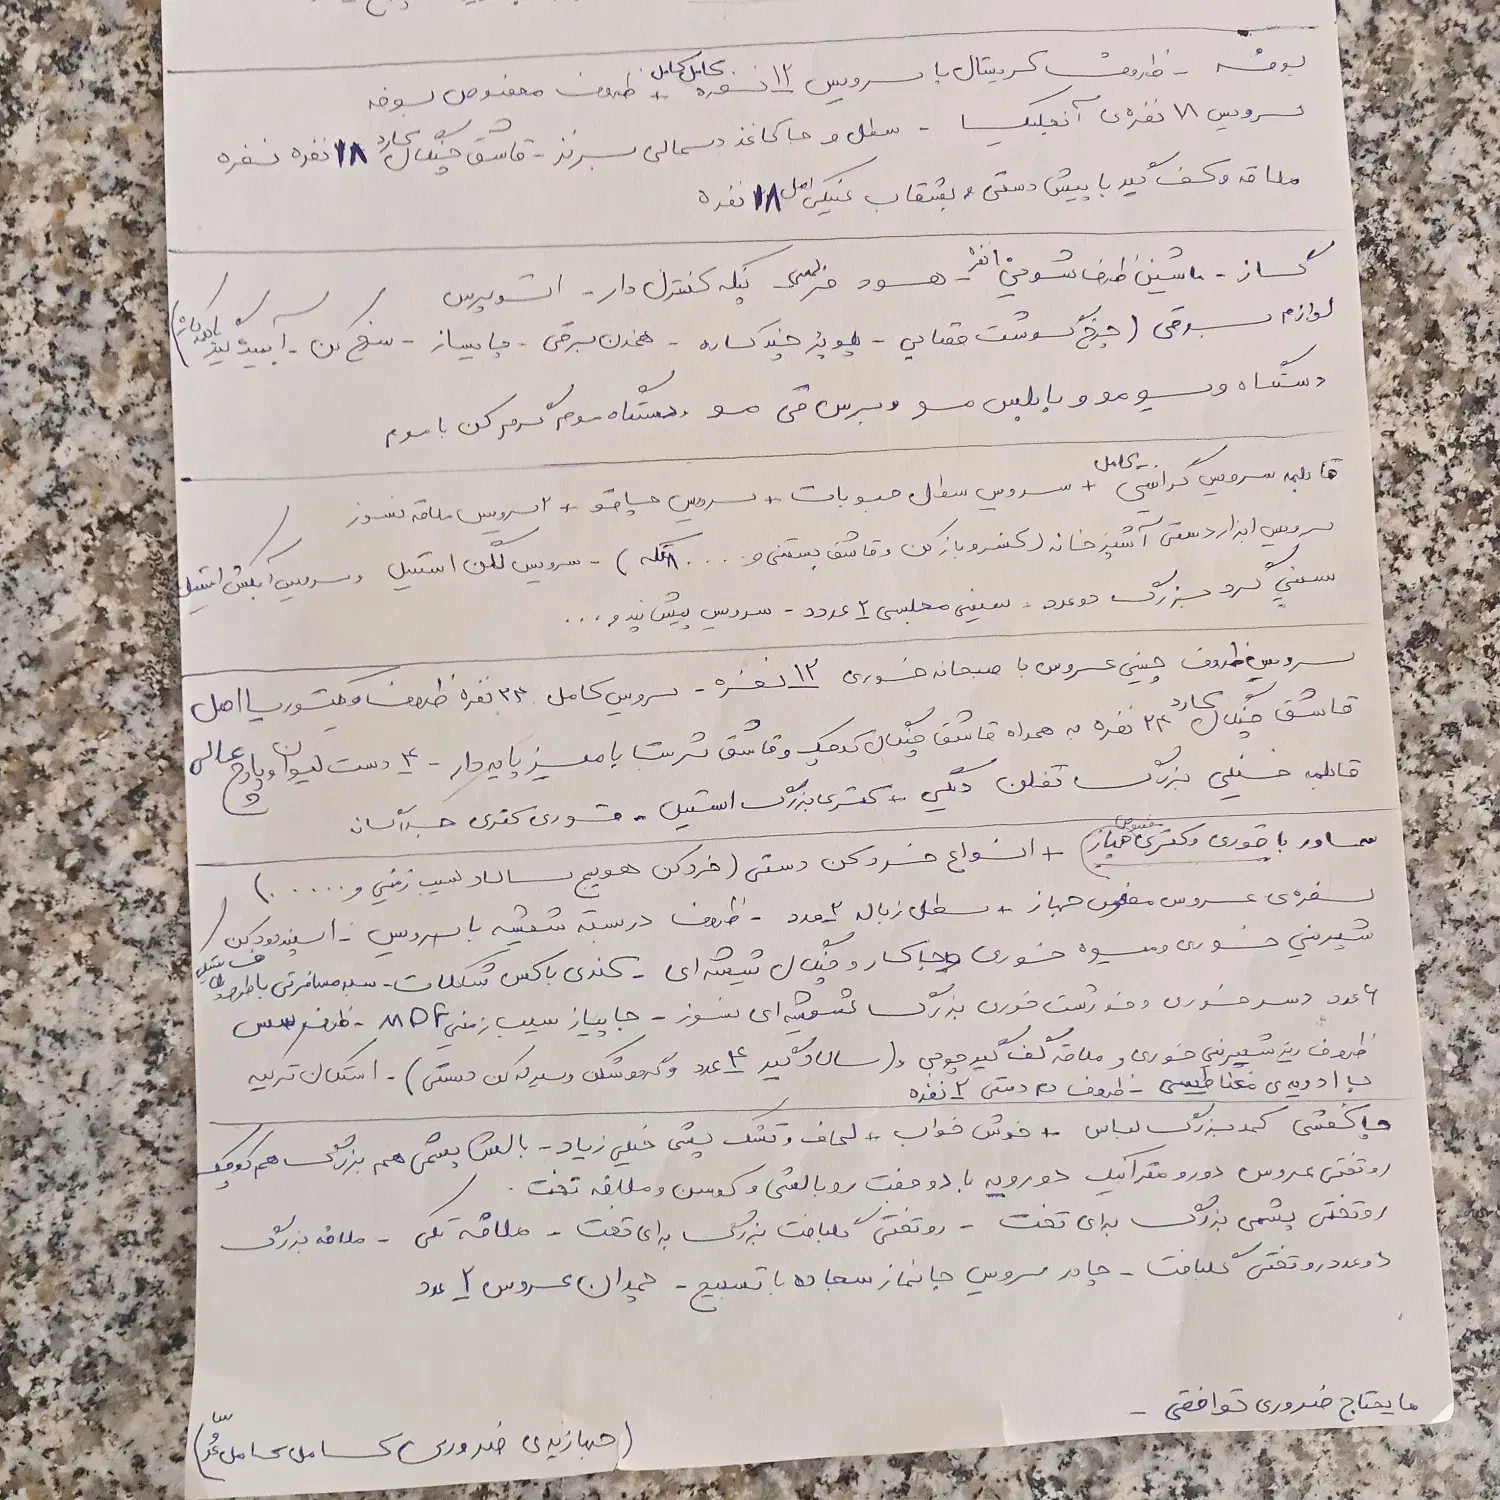 بوفه - ظروف کریستال با سرویس ۱۲ نفره کامل کامل + ظروف مخصوص بوفه
سرویس ۱۸ نفره‌ی آنجلیکا - سطل و جا کاغذ دستمالی برند - قاشق چنگال کارد ۱۸ نفره نقره
ملاقه و کفگیر با پیش دستی و بشقاب اصل ۱۸ نفره
گاز - ماشین ظرفشویی نفره - هود مخفی پنکه کنترل دار - اتو پرس
لوازم برقی (چرخ گوشت قصابی - پلوپز چند کاره - همزن برقی - چایساز - سرخ کن - آبمیوه گیری
دستگاه ویو مو و بابلیس مو و برس حرارتی مو دستگاه موم گرم کن با موم
قابلمه سرویس گرانیتی کامل + سرویس سطل حبوبات + سرویس چاقو + ۲ سرویس ملاقه نسوز
سرویس ابزار دستی آشپزخانه (کنسرو باز کن و قاشق بستنی و .... تکه) - سرویس لگن استیل و سرویس آبکش استیل
سینی گرد بزرگ دو عدد - سینی مجلسی ۲ عدد - سرویس پیش بند و ...
سرویس ظروف چینی عروس با صبحانه خوری ۱۲ نفره - سرویس کامل ۲۴ نفره ظروف ویکتوریا اصل
قاشق چنگال کارد ۲۴ نفره به همراه قاشق چنگال کوچک و قاشق شربت با میز پایه دار - ۴ دست لیوان و پارچ عالی
قابلمه خیلی بزرگ تفلون دیگی + کتری بزرگ استیل - قوری کتری جداگانه
سماور با قوری و کتری مخصوص جهاز + انواع خرد کن دستی (خرد کن هویج سالاد سیب زمینی و ......)
سفره‌ی عروس مخصوص جهاز + سطل زباله ۲ عدد - ظروف در بسته شیشه با سرویس - اسپند دود کن
شیرینی خوری و میوه خوری با کارد و چنگال شیشه‌ای - کندی باکس شکلات - سبد مسافرتی با ظروف
۶ عدد دسر خوری و خورشت خوری بزرگ شیشه‌ای نسوز - جا پیاز سیب زمینی MDF - ظرف سس
ظروف ریز شیرینی خوری و ملاقه کفگیر چوبی و (سالاد گیر ۴ عدد و گردو شکن و سیر له کن دستی) - استکان ترکیه
جا ادویه‌ی مغناطیسی - ظروف دم دستی ۲ نفره
جاکفشی کمد بزرگ لباس + خوش خواب + لحاف و تشک پشمی خیلی زیاد - بالش پشمی هم بزرگ هم کوچک
روتختی عروس دورو متراکیت دورویه با دو جفت رو بالشی و کوسن و ملافه تخت .
روتختی پشمی بزرگ برای تخت - روتختی گلبافت بزرگ برای تخت - ملافه تکی - ملافه بزرگ
دو عدد روتختی گلبافت - چادر سرویس جانماز سجاده با تسبیح - چمدان عروس ۲ عدد
مایحتاج ضروری توافقی -
(جهازیه‌ی ضروری کامل کامل